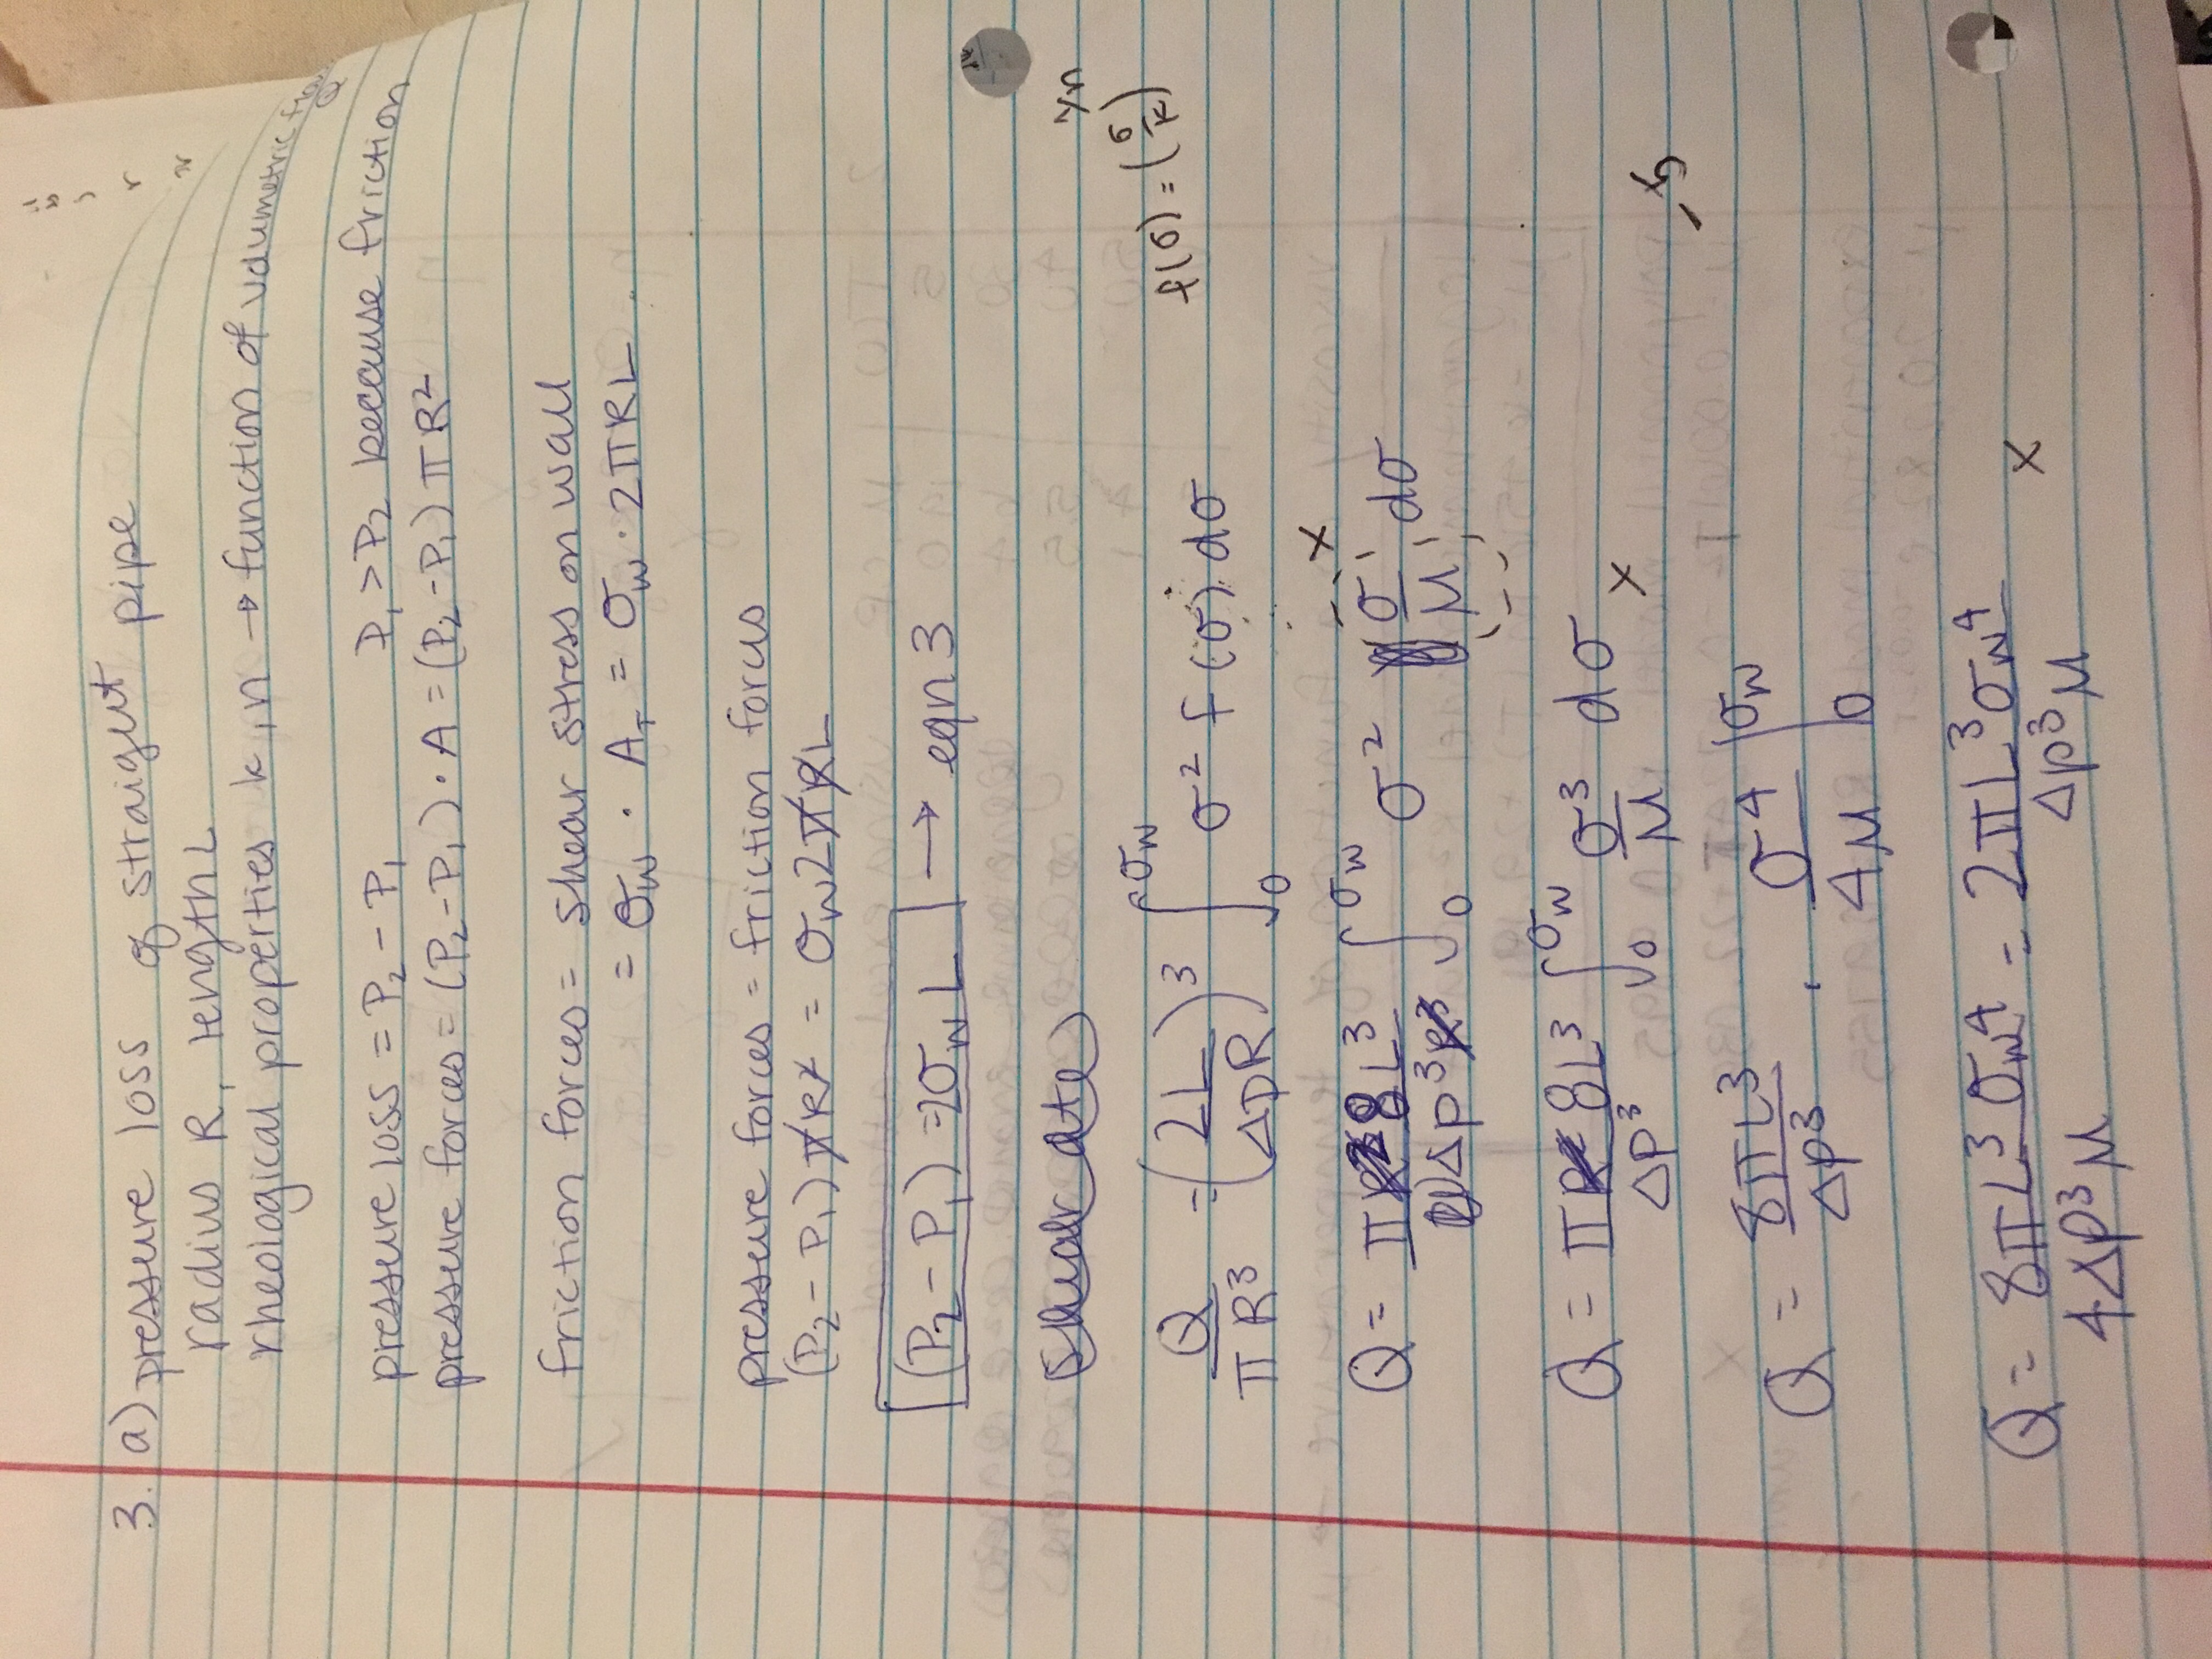 3. a) pressure loss of straigut pipe
radius R, length L
rheological properties k, n → function of volumetric
pressure loss = P₂ - P₁ P₁ > P₂ because friction
pressure forces = (P₂-P₁) · A = (P₂-P₁) πR²
friction forces = shear stress on wall
= σw · A_T = σw · 2πRL
pressure forces = friction forces
(P₂ - P₁) πR² = σw2πRL
(P₂ - P₁) = 2σw L → eqn 3
Q/πR³ = (2L/ΔPR)³ ∫₀^σw σ² f(σ) dσ f(σ) = (σ/k)^1/n
Q = π 8L³/ΔP³R³ ∫₀^σw σ² σ/μ dσ x
Q = π 8L³/ΔP³ ∫₀^σw σ³/μ dσ x
-5
Q = 8πL³/ΔP³ · σ⁴/4μ |₀^σw
Q = 8πL³σw⁴/4ΔP³μ = 2πL³σw⁴/ΔP³μ x